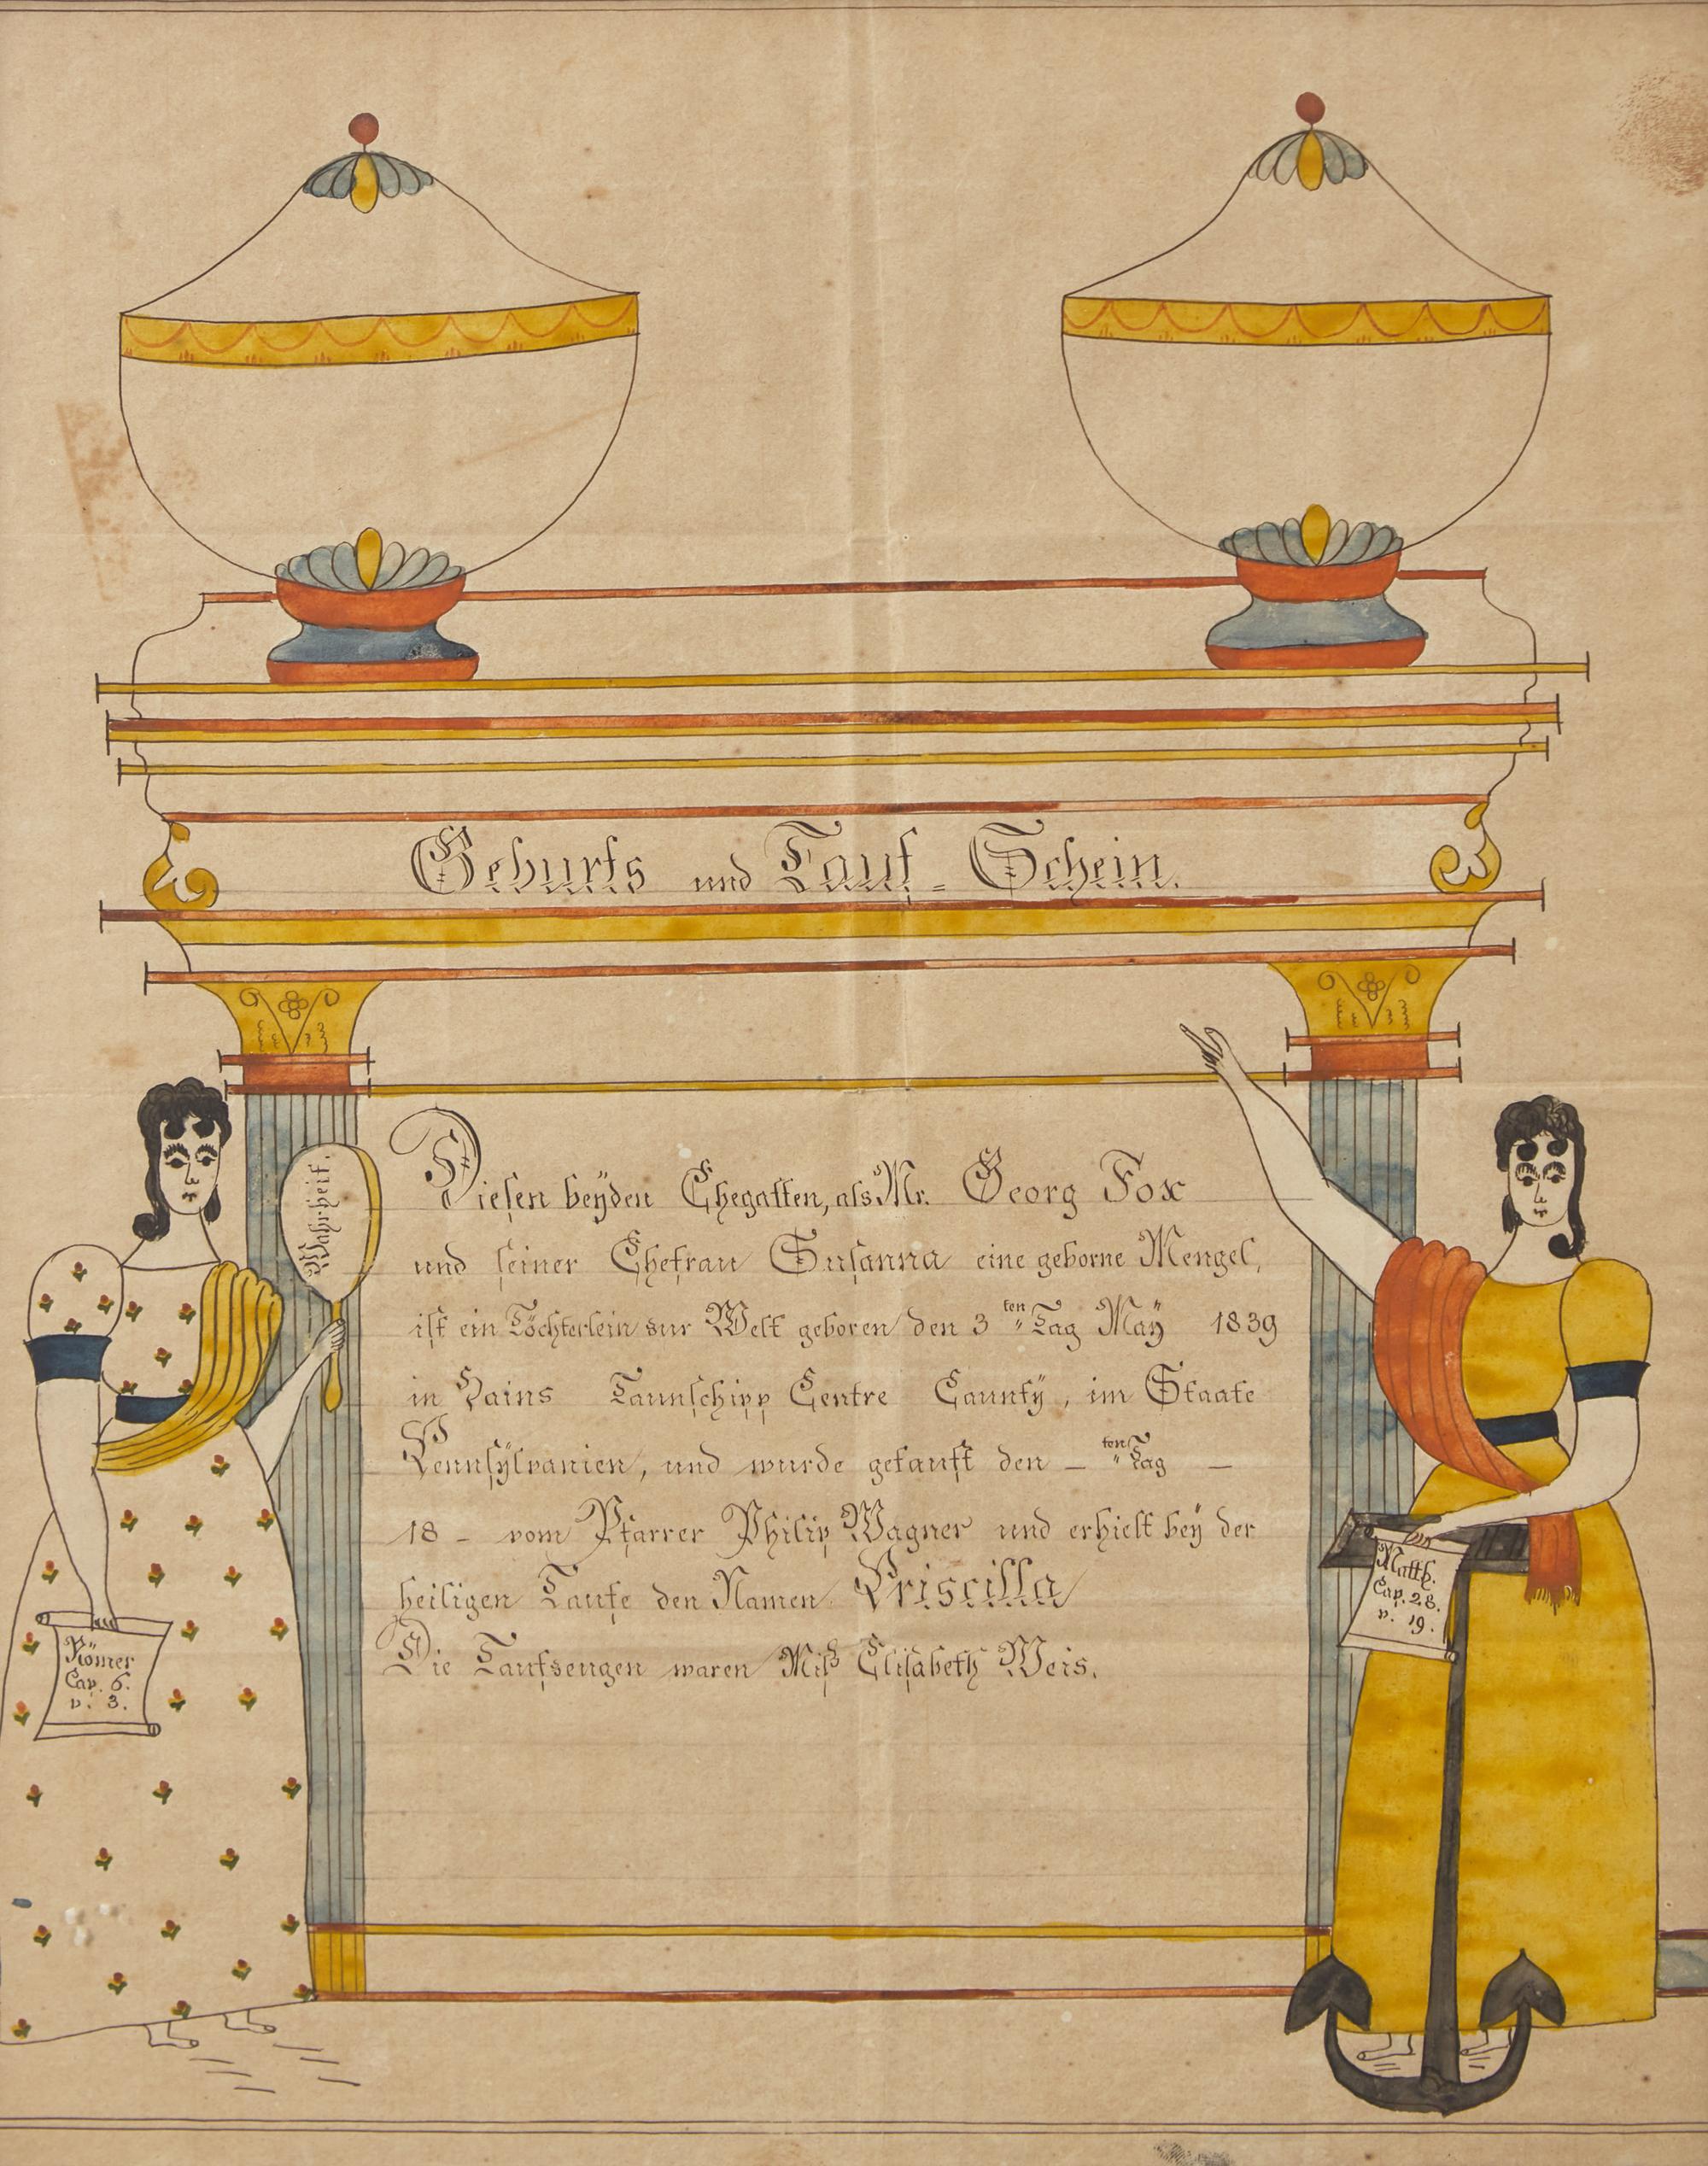 Geburts und Tauf-Schein.
Wahrheit.
Diesen beÿden Ehegatten, als Mr. Georg Fox
und seiner Ehefrau Susanna eine geborne Mengel,
ist ein Töchterlein zur Welt geboren den 3ten Tag Maÿ 1839
in Hains Taunschipp Centre Cauntÿ, im Staate
Pennsÿlvanien, und wurde getauft den – ten Tag –
18 – vom Pfarrer Philip Wagner und erhielt beÿ der
heiligen Taufe den Namen Priscilla
Die Taufzeugen waren Miß Elisabeth Weis.
Römer
Cap. 6.
v. 3.
Matth.
Cap. 28.
v. 19.